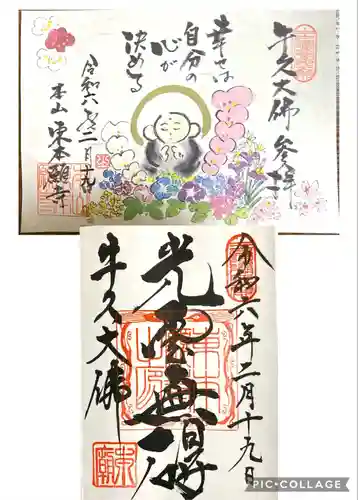 牛久大佛参拝
幸せは
自分の
心が
決める
令和六年二月十九日
本山東本願寺
令和六年二月十九日
光雲無碍
牛久大佛
PIC•COLLAGE